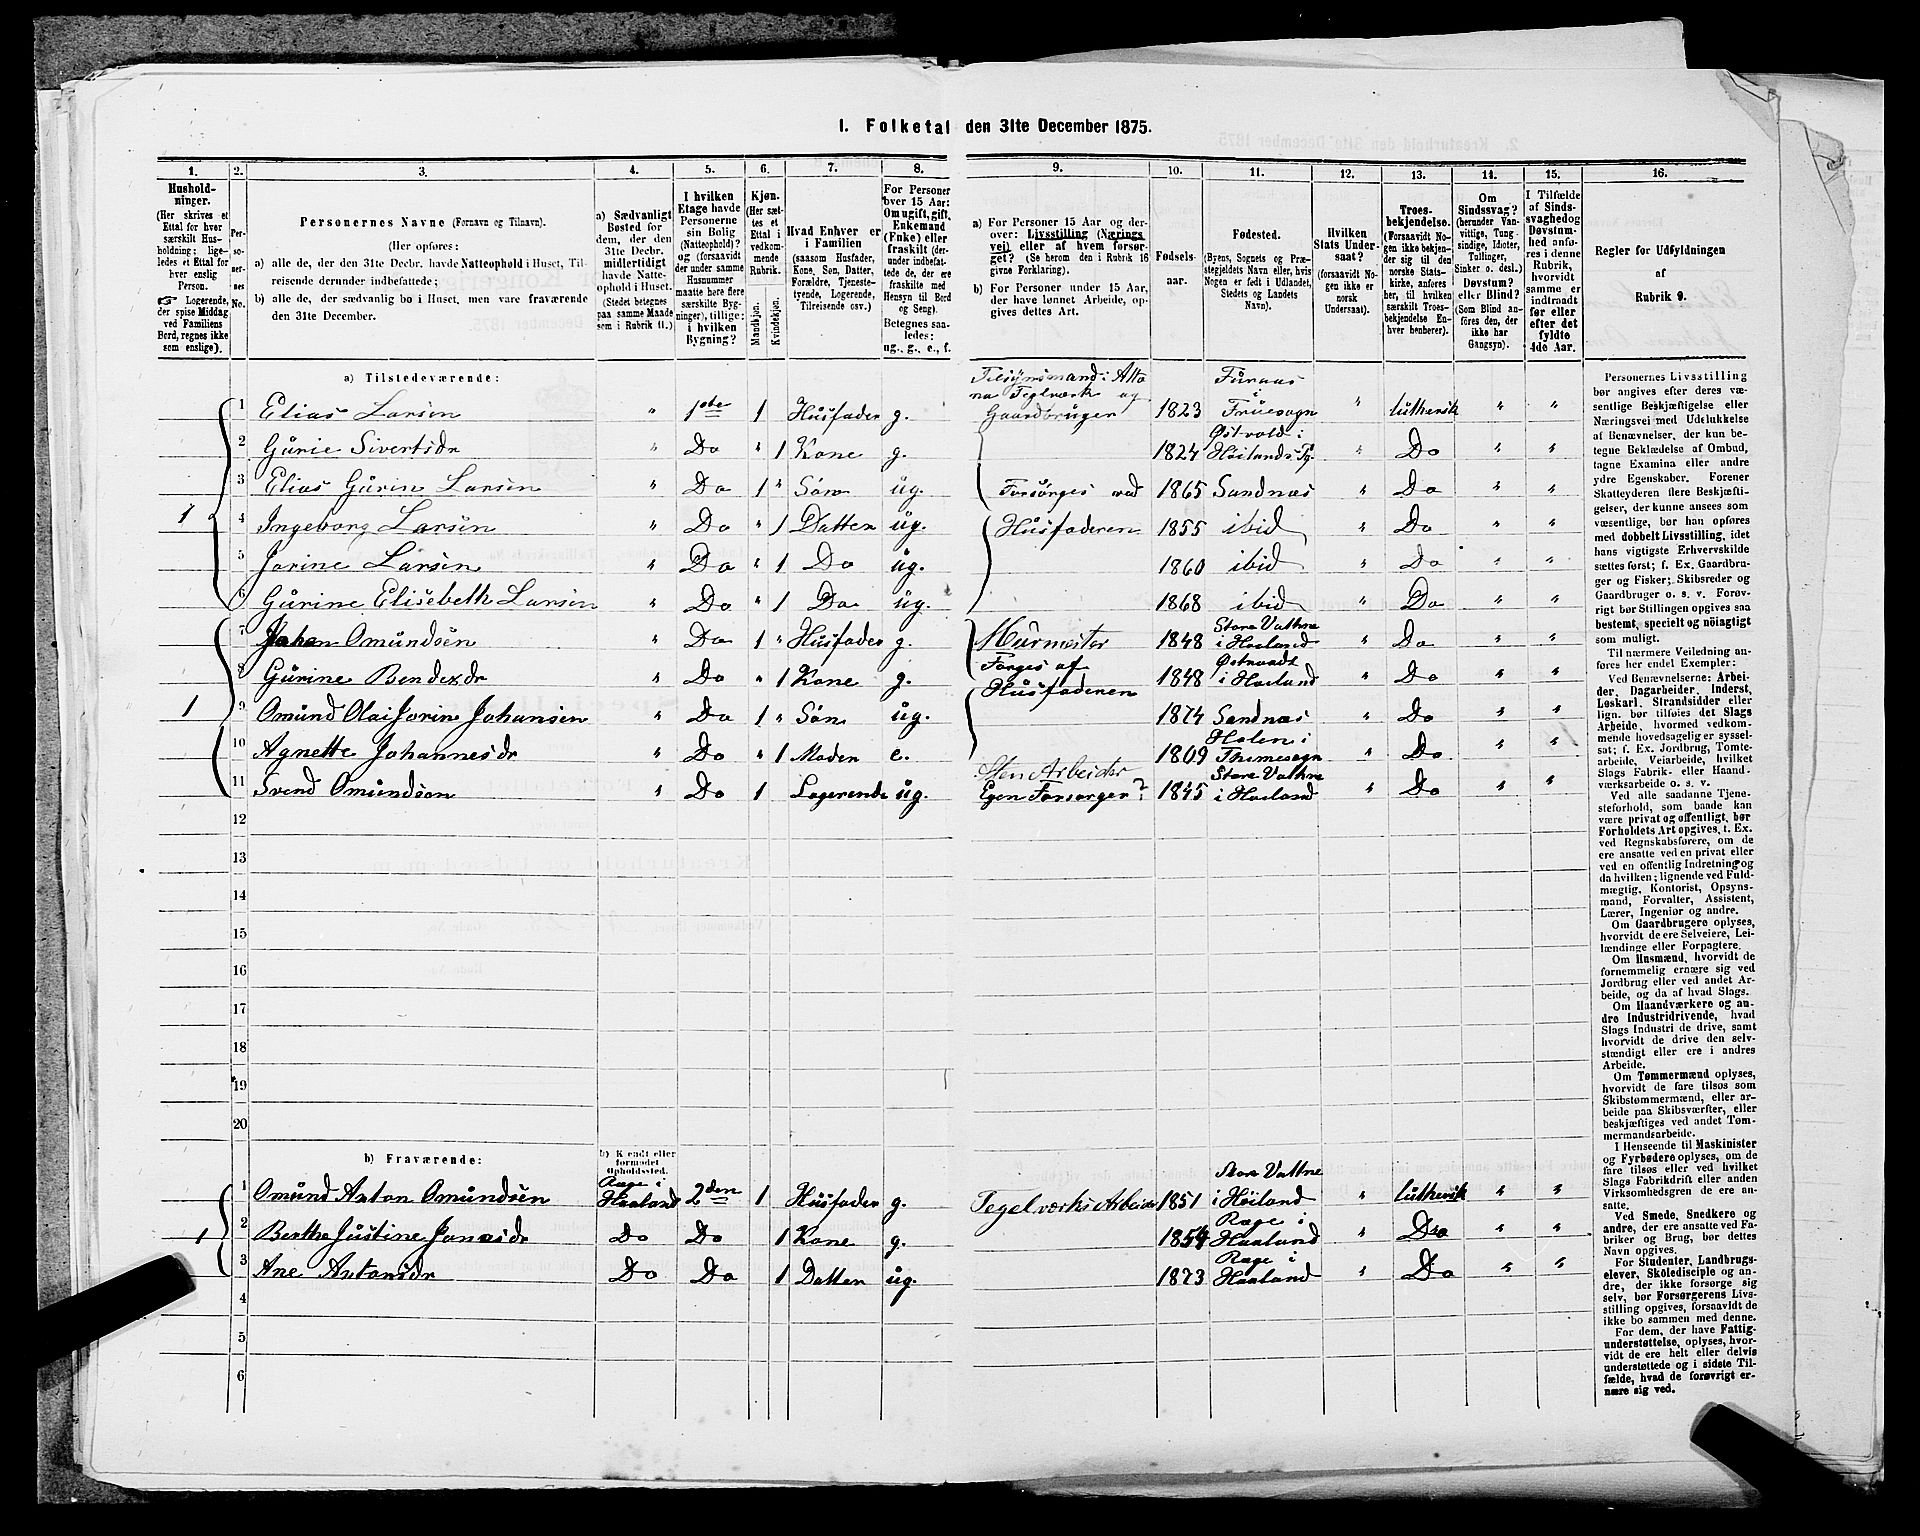 1. Folketal den 31te December 1875.
1.
Hushold-
ninger.
(Her skrives et
Ettal for hver
særskilt Hus-
holdning; lige-
ledes et Ettal for
hver enslig
Person.
☞ Logerende,
der spise Middag
ved Familiens
Bord, regnes ikke
som enslige).
2.
Per-
so-
ner-
nes
No.
3.
Personernes Navne (Fornavn og Tilnavn).
(Her opføres:
a) alle de, der den 31te Decbr. havde Natteophold i Huset, Til-
reisende derunder indbefattede;
b) alle de, der sædvanlig bo i Huset, men vare fraværende
den 31te December.
4.
a) Sædvanligt
Bosted for
dem, der den
31te Decbr.
midlertidigt
havde Natte-
ophold i Huset.
(Stedet betegnes
paa samme Maade
som i Rubrik 11.)
5.
I hvilken
Etage havde
Personerne
sin Bolig
(Natteophold)?
og (forsaavidt
der under samme
Husnummer
maatte høre flere
særskilte Byg-
ninger), tillige:
i hvilken
Bygning?
6.
Kjøn.
(Her sæt-
tes et
Ettal i
vedkom-
mende
Rubrik.
Mandkjøn.
Kvindekjøn.
7.
Hvad Enhver er
i Familien
(saasom Husfader,
Kone, Søn, Datter,
Forældre, Tjeneste-
tyende, Logerende,
Tilreisende osv.)
8.
For Personer
over 15 Aar:
Om ugift, gift,
Enkemand
(Enke) eller
fraskilt (der-
under indbefat-
tede de, der ere
fraskilte med
Hensyn til Bord
og Seng).
Betegnes saa-
ledes:
ug., g., e., f.
9.
a) For Personer 15 Aar og der-
over: Livsstilling (Nærings
vei) eller af hvem forsør-
get? (Se herom den i Rubrik 16
givne Forklaring).
b) For Personer under 15 Aar,
der have lønnet Arbeide, op-
gives dettes Art.
10.
Fødsels-
aar.
11.
Fødested.
(Byens, Sognets og Præ-
stegjeldets Navn eller, hvis
Nogen er født i Udlandet,
Stedets og Landets
Navn).
12.
Hvilken
Stats Under-
saat?
(forsaavidt No-
gen ikke er
norsk
Undersaat).
13.
Troes-
bekjendelse.
(Forsaavidt No-
gen ikke bekjen-
der sig til den
norske Stats-
kirke, anføres
her, til hvilken
særskilt Troes-
bekjendelse En-
hver henhører).
14.
Om
Sindssvag?
(herunder Van-
vittige, Tung-
sindige, Idioter,
Tullinger,
Sinker o. desl.)
Døvstum?
eller Blind?
(Som Blind an-
føres den, der
ikke har
Gangsyn).
15.
I Tilfælde
af Sinds-
svaghed og
Døvstum-
hed anfø-
res i denne
Rubrik,
hvorvidt
samme er
indtraadt
før eller
efter det
fyldte
4de Aar.
16.
Regler for Udfyldningen
af
Rubrik 9.
a) Tilstedeværende:
1 Elias Larsen " 1ste 1 Husfader g. Tilsynsmand i Alta na Teglværk og Gaardbruger 1823 Furaas i Fruesogn " luthersk " "
2 Gurie Sivertsdr " Do " 1 Kone g. 1824 Østvold i Høilands Pg. " Do " "
3 Elias Gurin Larsen " Do 1 " Søn ug. Forsørges ved 1865 Sandnæs " Do " "
1 4 Ingeborg Larsen " Do " 1 Datter ug. Husfaderen 1855 ibid " Do " "
5 Jorine Larsen " Do " 1 Do ug. 1860 ibid " Do " "
6 Gurine Elisebeth Larsen " Do " 1 Do ug. 1868 ibid " Do " "
7 Johan Omundsen " Do 1 " Husfader g. Murmester 1848 Store Vathne i Høiland " Do " "
8 Gurine Bendixdr " Do " 1 Kone g. Forges af Husfaderen 1848 Østraadt i Høiland " Do " "
1 9 Omund Olai Jorin Johansen " Do 1 " Søn ug. 1874 Sandnæs " Do " "
10 Agnette Johannesdr " Do " 1 Moder e. 1809 Holen i Thimesogn " Do " "
11 Svend Omundsen " Do 1 Logerende ug. Sten Arbeider Egen Forsørger? 1845 Store Vathne i Høiland " Do " "
12
13
14
15
16
17
18
19
20
b) Fraværende:
b) Kjendt eller
formodet
Opholdssted.
1 Omund Anton Omundsen Rage i Haaland 2den 1 Husfader g. Tegelværks Arbeider 1851 Store Vathne i Høiland " luthersk " "
1 2 Berthe Justine Jonasdr Do Do 1 Kone g. 1854 Rage i Haaland " Do " "
3 Ane Antonsdr Do Do 1 Datter ug. 1873 Rage i Haaland " Do " "
4
5
6
Personernes Livsstilling
bør angives efter deres væ-
sentlige Beskjæftigelse eller
Næringsvei med Udelukkelse
af Benævnelser, der kun be-
tegne Beklædelse af Ombud,
tagne Examina eller andre
ydre Egenskaber. Forener
Skatteyderen flere Beskjæfti-
gelser, der kunne ansees som
væsentlige, bør han opføres
med dobbelt Livsstilling, idet
hans vigtigste Erhvervskilde
sættes først; f. Ex. Gaardbru-
ger og Fisker; Skibsreder og
Gaardbruger o. s. v. Forøv-
rigt bør Stillingen opgives saa
bestemt, specielt og nøiagtigt
som muligt.
Til nærmere Veiledning an-
føres her endel Exempler:
Ved Benævnelserne: Arbei-
der, Dagarbeider, Inderst,
Løskarl, Strandsidder eller
lign. bør tilføies det Slags
Arbeide, hvormed vedkom-
mende hovedsagelig er syssel-
sat; f. Ex. Jordbrug, Tomte-
arbeide, Veiarbeide, hvilket
Slags Fabrik- eller Haand-
værksarbeide o. s. v.
Ved alle saadanne Tjene-
steforhold, som baade kan
være privat og offentligt, bør
Forholdets Art opgives, t. Ex.
ved Regnskabsførere, om de
ere ansatte ved en privat eller
ved en offentlig Indretning og
da hvilken; lignende ved Fuld-
mægtig, Kontorist, Opsyns-
mand, Forvalter, Assistent,
Lærer, Ingeniør og andre.
Om Gaardbrugere oplyses,
hvorvidt de ere Selveiere, Lei-
lændinge eller Forpagtere.
Om Husmænd, hvorvidt de
fornemmelig ernære sig ved
Jordbrug eller ved andet Ar-
beide, og da af hvad Slags.
Om Haandværkere og an-
dre Industridrivende, hvad
Slags Industri de drive, samt
hvorvidt de drive den selv-
stændigt eller ere i andres
Arbeide.
Om Tømmermænd oplyses,
hvorvidt de fare tilsøs som
Skibstømmermænd, eller ar-
beide paa Skibsværfter, eller
beskjæftiges ved andet Tøm-
mermandsarbeide.
I Henseende til Maskinister
og Fyrbødere oplyses, om de
fare tilsøs eller ved hvilket
Slags Fabrikdrift eller anden
Virksomhedsgren de ere an-
satte.
Ved Smede, Snedkere og
andre, der ere ansatte ved Fa-
briker og Brug, bør dettes
Navn opgives.
For Studenter, Landbrugs-
elever, Skoledisciple og an-
dre, der ikke forsørge sig
selv, bør Forsørgerens Livs-
stilling opgives, forsaavidt de
ikke bo sammen med denne.
For dem, der have Fattig-
understøttelse, oplyses, hvor-
vidt de ere helt eller delvis
understøttede og i sidste Til-
fælde, hvad de forøvrigt er-
nære sig ved.